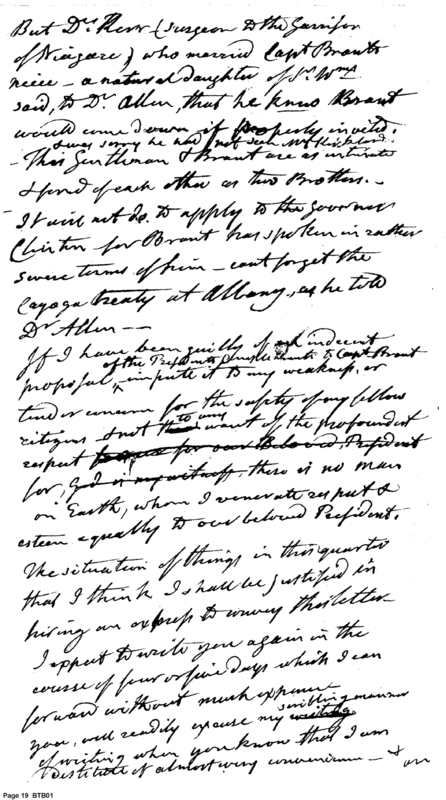 But Dr. Kerr (Surgeon to the Garrison
of Niagara) who married Capt Brants
neice - a natural daughter of Sr. Wms
said, to Dr. Allen, that he knew Brant
would come down if properly invited.
& was sorry he had not seen Mr Kirkland
- This Gentleman & Brant are as intimate
& fond of each other as two Brothers. -
It will not do to apply to the Governor
Clinton - for Brant has spoken in rather
severe terms of him - cant forget the
Cayoga treaty at Albany, as he told
Dr Allen - -
If I have been guilty of an indecent
of the Presidents compliments to Capt Brant
proposal, impute it to my weakness, or
tender concern for the safety of my fellow
citizens & not to any want of the profoundest
respect for our Beloved President
for, God is my witness, there is no man
on Earth, whom I venerate respect &
esteem equally to our beloved President.
The situation of things in this quarter
that I think I shall be justified in
hiring an express to convey this letter
I expect to write you again in the
course of four or five days which I can
forward without much expence
you, will readily excuse my writing
scribling manner
of writing when you know that I am
destitute of almost every convenience - &
on
Page 19 BTB01